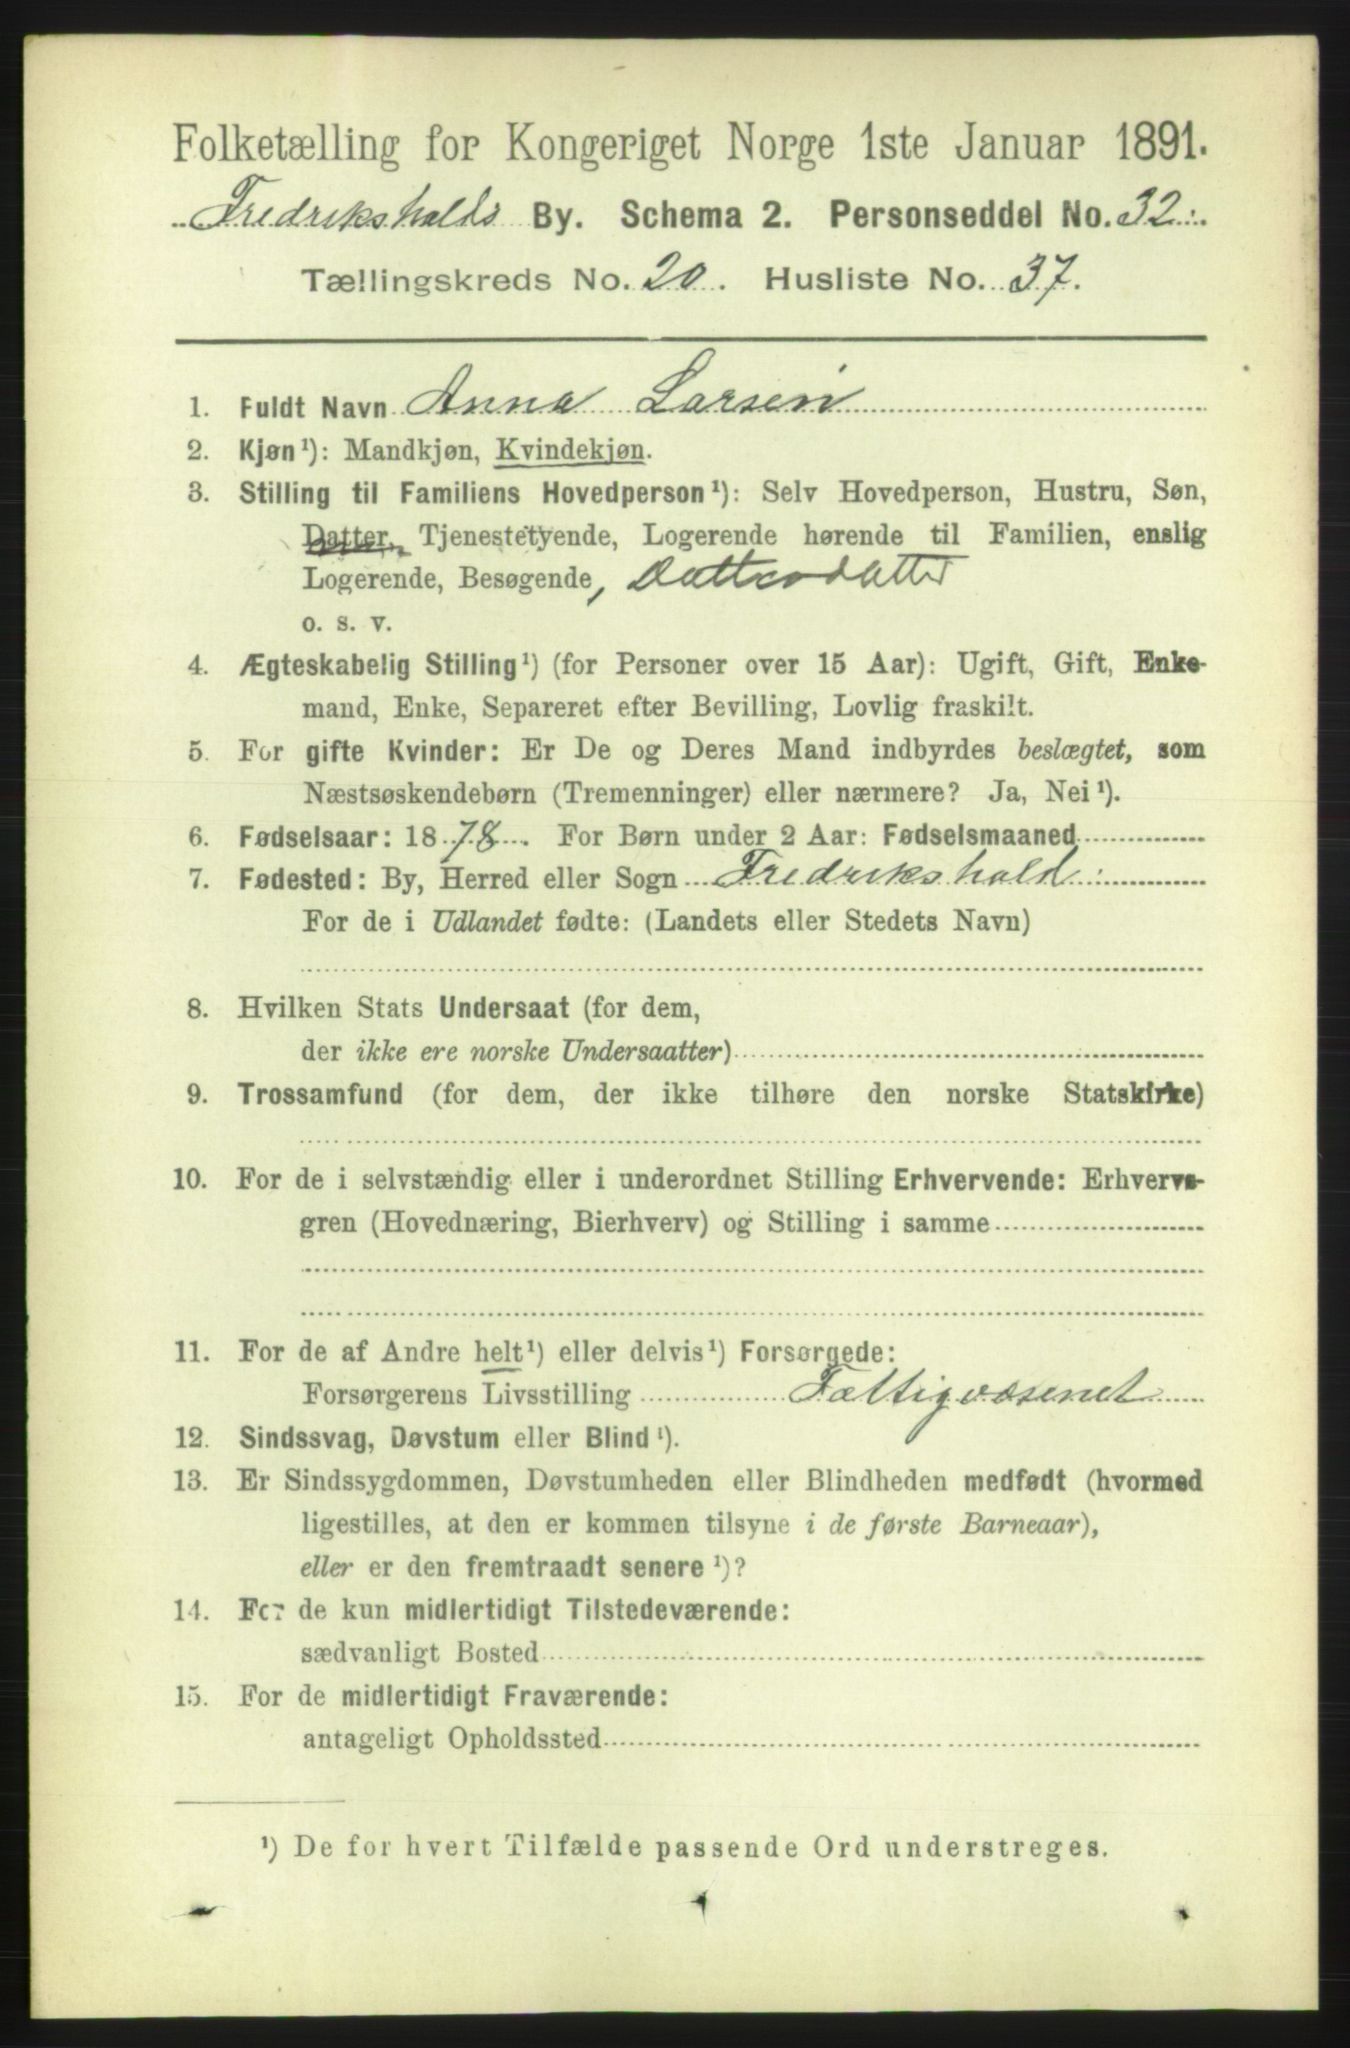 Folketælling for Kongeriget Norge 1ste Januar 1891.
Fredrikshalds By. Schema 2. Personseddel No. 32.
Tællingskreds No. 20. Husliste No. 37.
1. Fuldt Navn Anna Larsen
2. Kjøn¹): Mandkjøn, Kvindekjøn.
3. Stilling til Familiens Hovedperson¹): Selv Hovedperson, Hustru, Søn,
Datter, Tjenestetyende, Logerende hørende til Familien, enslig
Logerende, Besøgende, Datterdatter
o. s. v.
4. Ægteskabelig Stilling¹) (for Personer over 15 Aar): Ugift, Gift, Enke-
mand, Enke, Separeret efter Bevilling, Lovlig fraskilt.
5. For gifte Kvinder: Er De og Deres Mand indbyrdes beslægtet, som
Næstsøskendebørn (Tremenninger) eller nærmere? Ja, Nei¹).
6. Fødselsaar: 1878. For Børn under 2 Aar: Fødselsmaaned
7. Fødested: By, Herred eller Sogn Fredrikshald
For de i Udlandet fødte: (Landets eller Stedets Navn)
8. Hvilken Stats Undersaat (for dem,
der ikke ere norske Undersaatter)
9. Trossamfund (for dem, der ikke tilhøre den norske Statskirke)
10. For de i selvstændig eller i underordnet Stilling Erhvervende: Erhvervs-
gren (Hovednæring, Bierhverv) og Stilling i samme
11. For de af Andre helt¹) eller delvis¹) Forsørgede:
Forsørgerens Livsstilling Fattigvæsenet
12. Sindssvag, Døvstum eller Blind¹).
13. Er Sindssygdommen, Døvstumheden eller Blindheden medfødt (hvormed
ligestilles, at den er kommen tilsyne i de første Barneaar),
eller er den fremtraadt senere¹)?
14. For de kun midlertidigt Tilstedeværende:
sædvanligt Bosted
15. For de midlertidigt Fraværende:
antageligt Opholdssted
¹) De for hvert Tilfælde passende Ord understreges.